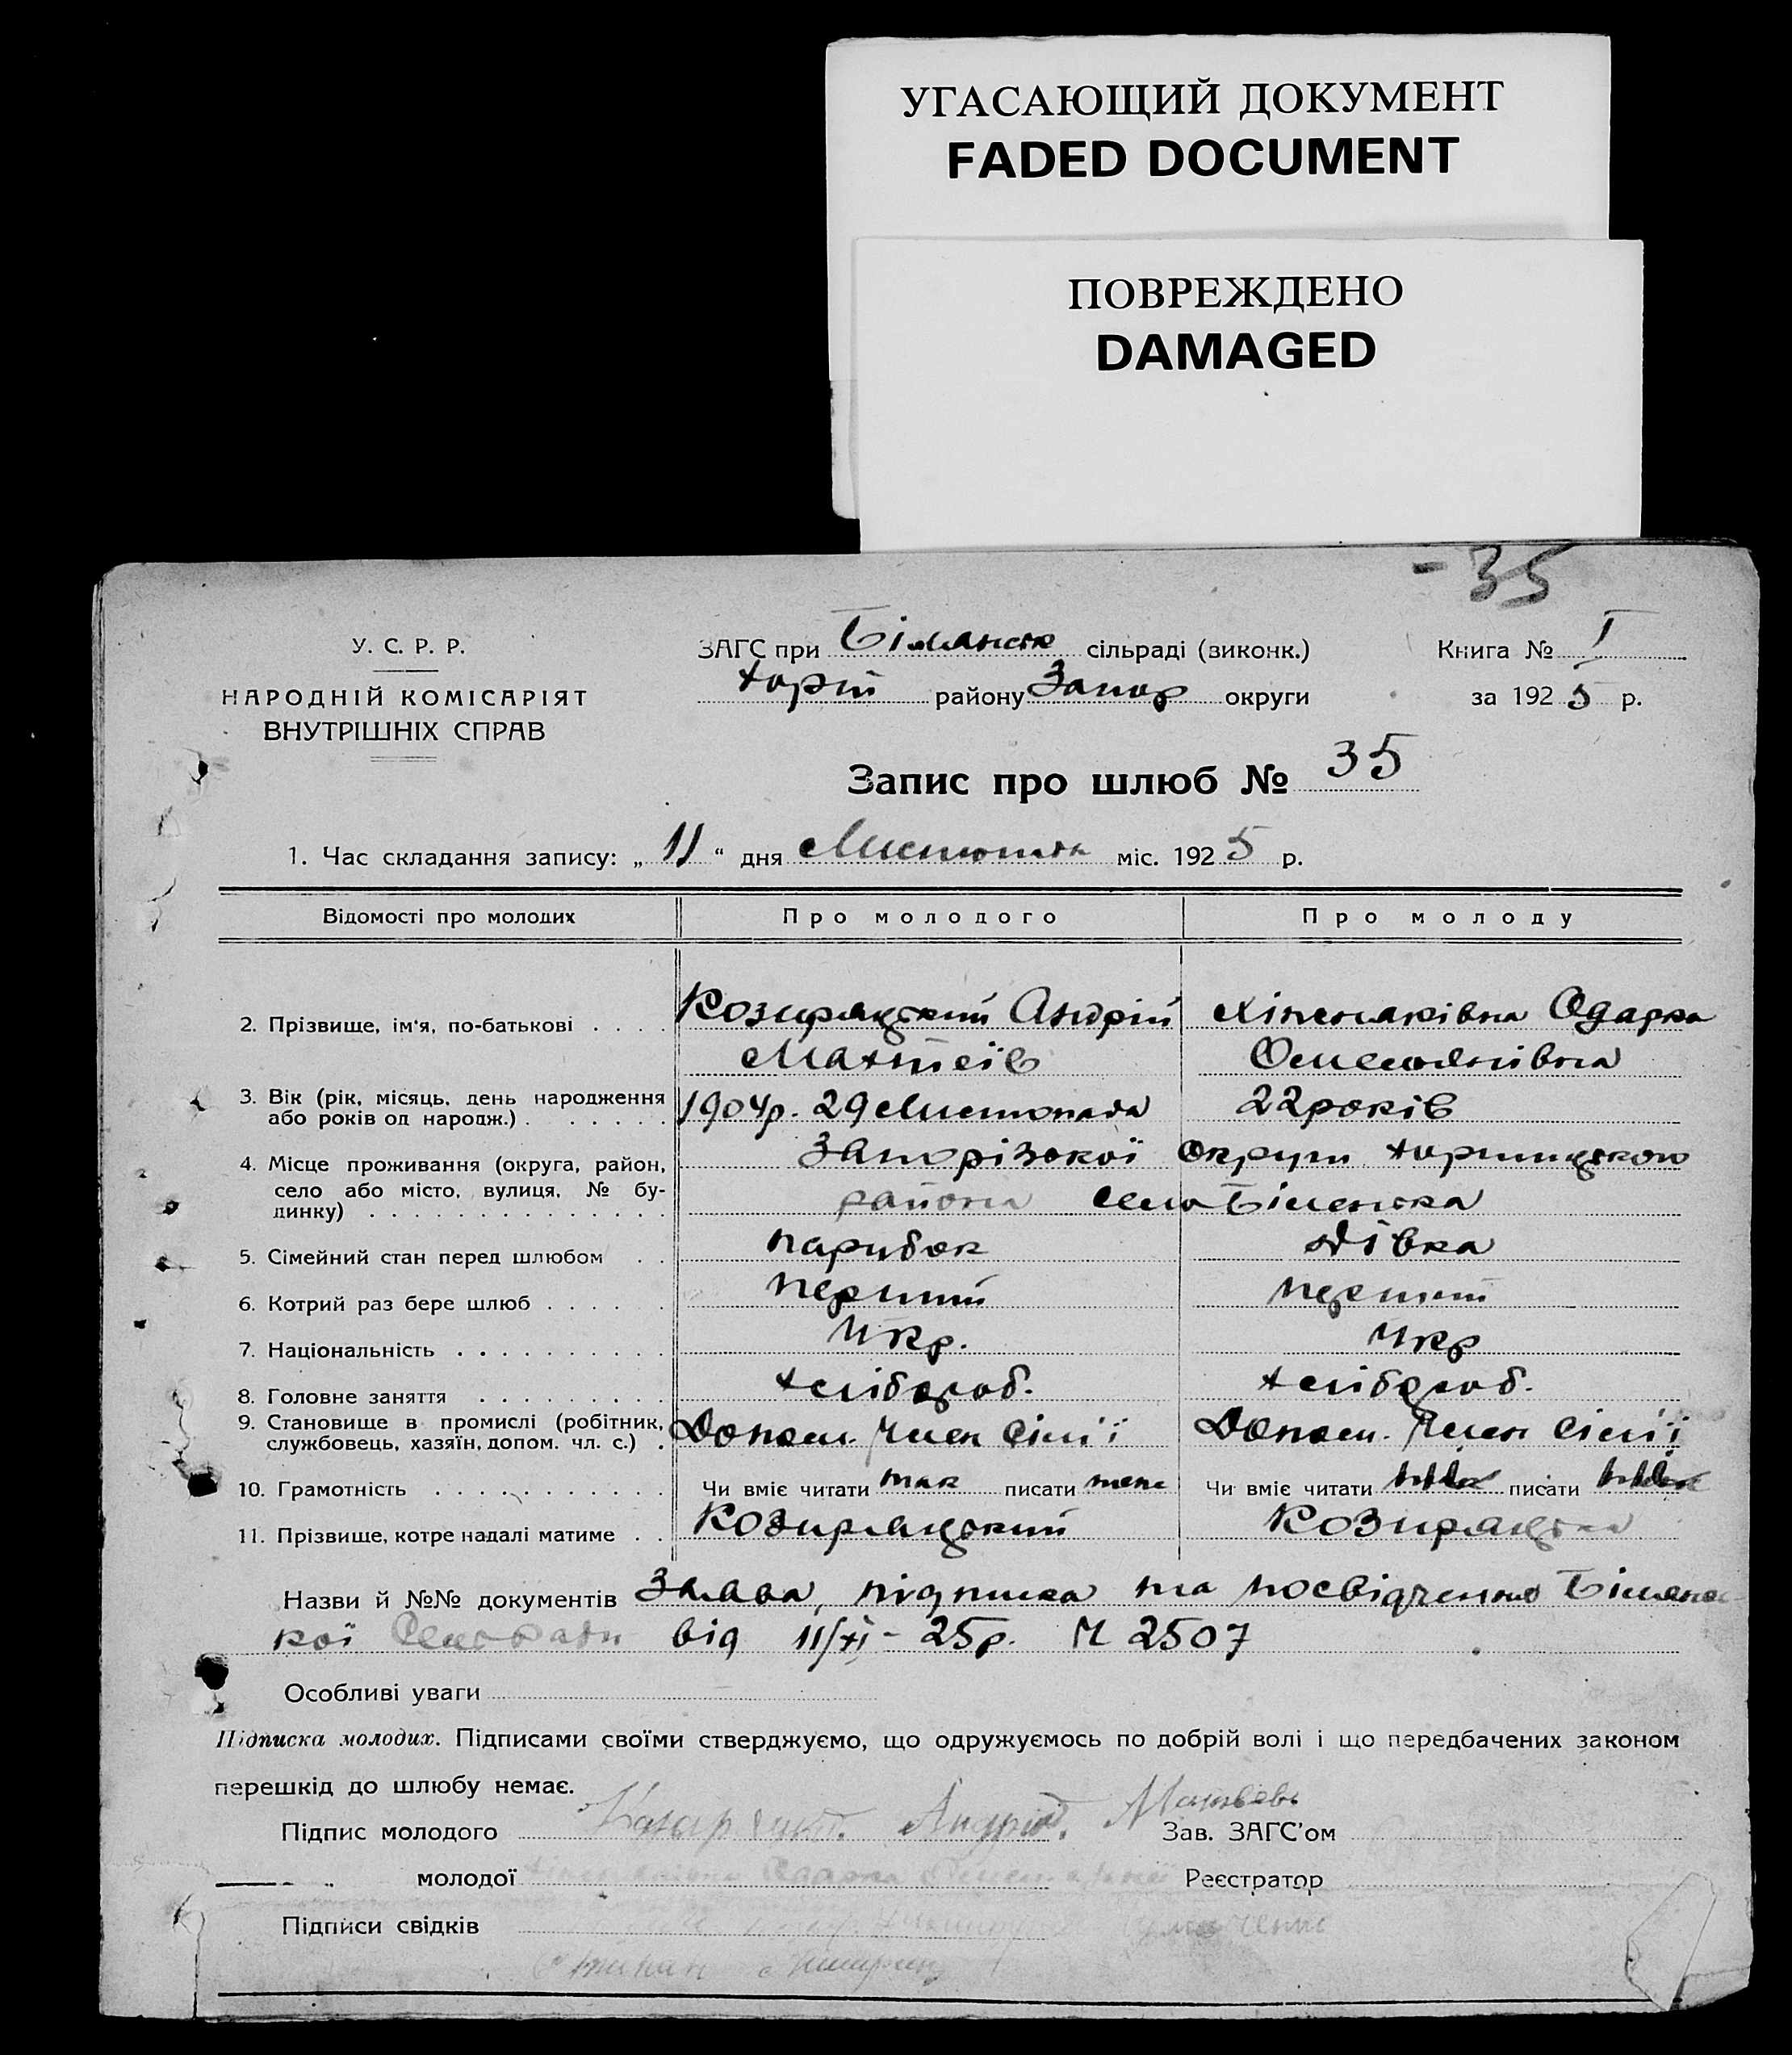 УГАСАЮЩИЙ ДОКУМЕНТ
FADED DOCUMENT
ПОВРЕЖДЕНО
DAMAGED
-35
У. С. Р. Р.
НАРОДНІЙ КОМІСАРІЯТ
ВНУТРІШНІХ СПРАВ
ЗАГС при Біланськ сільраді (виконк.)
Хорт району Запор округи
Книга № I
за 1925 р.
Запис про шлюб № 35
1. Час складання запису: „11“ дня Листопада міс. 1925 р.
Відомості про молодих Про молодого Про молоду
2. Прізвище, ім'я, по-батькові . . . . Андрій Одарка
Матвіїв Омелянівна
3. Вік (рік, місяць, день народження
або років од народж.) . . . . . . 1904р. 29 Листопада 22 років
4. Місце проживання (округа, район,
село або місто, вулиця, № бу-
динку) . . . . . . . . . . . . . .
Запорізької округи Хортицького
района село Біленька
5. Сімейний стан перед шлюбом . . парубок дівка
6. Котрий раз бере шлюб . . . . . . перший перший
7. Національність . . . . . . . . . . Укр. Укр
8. Головне заняття . . . . . . . . . хлібороб. хлібороб.
9. Становище в промислі (робітник,
службовець, хазяїн, допом. чл. с.) . Допом. член сім'ї Допом. член сім'ї
10. Грамотність . . . . . . . . . . . Чи вміє читати так писати так Чи вміє читати писати
11. Прізвище, котре надалі матиме . . Козиряцький Козиряцька
Назви й №№ документів Заява, підписка та посвідчення Білянсь-
кої Сельради від 11/XI - 25р. № 2507
Особливі уваги
Підписка молодих. Підписами своїми стверджуємо, що одружуємось по добрій волі і що передбачених законом
перешкід до шлюбу немає.
Підпис молодого Андрій Зав. ЗАГС'ом
„ молодої Одарка Реєстратор
Підписи свідків